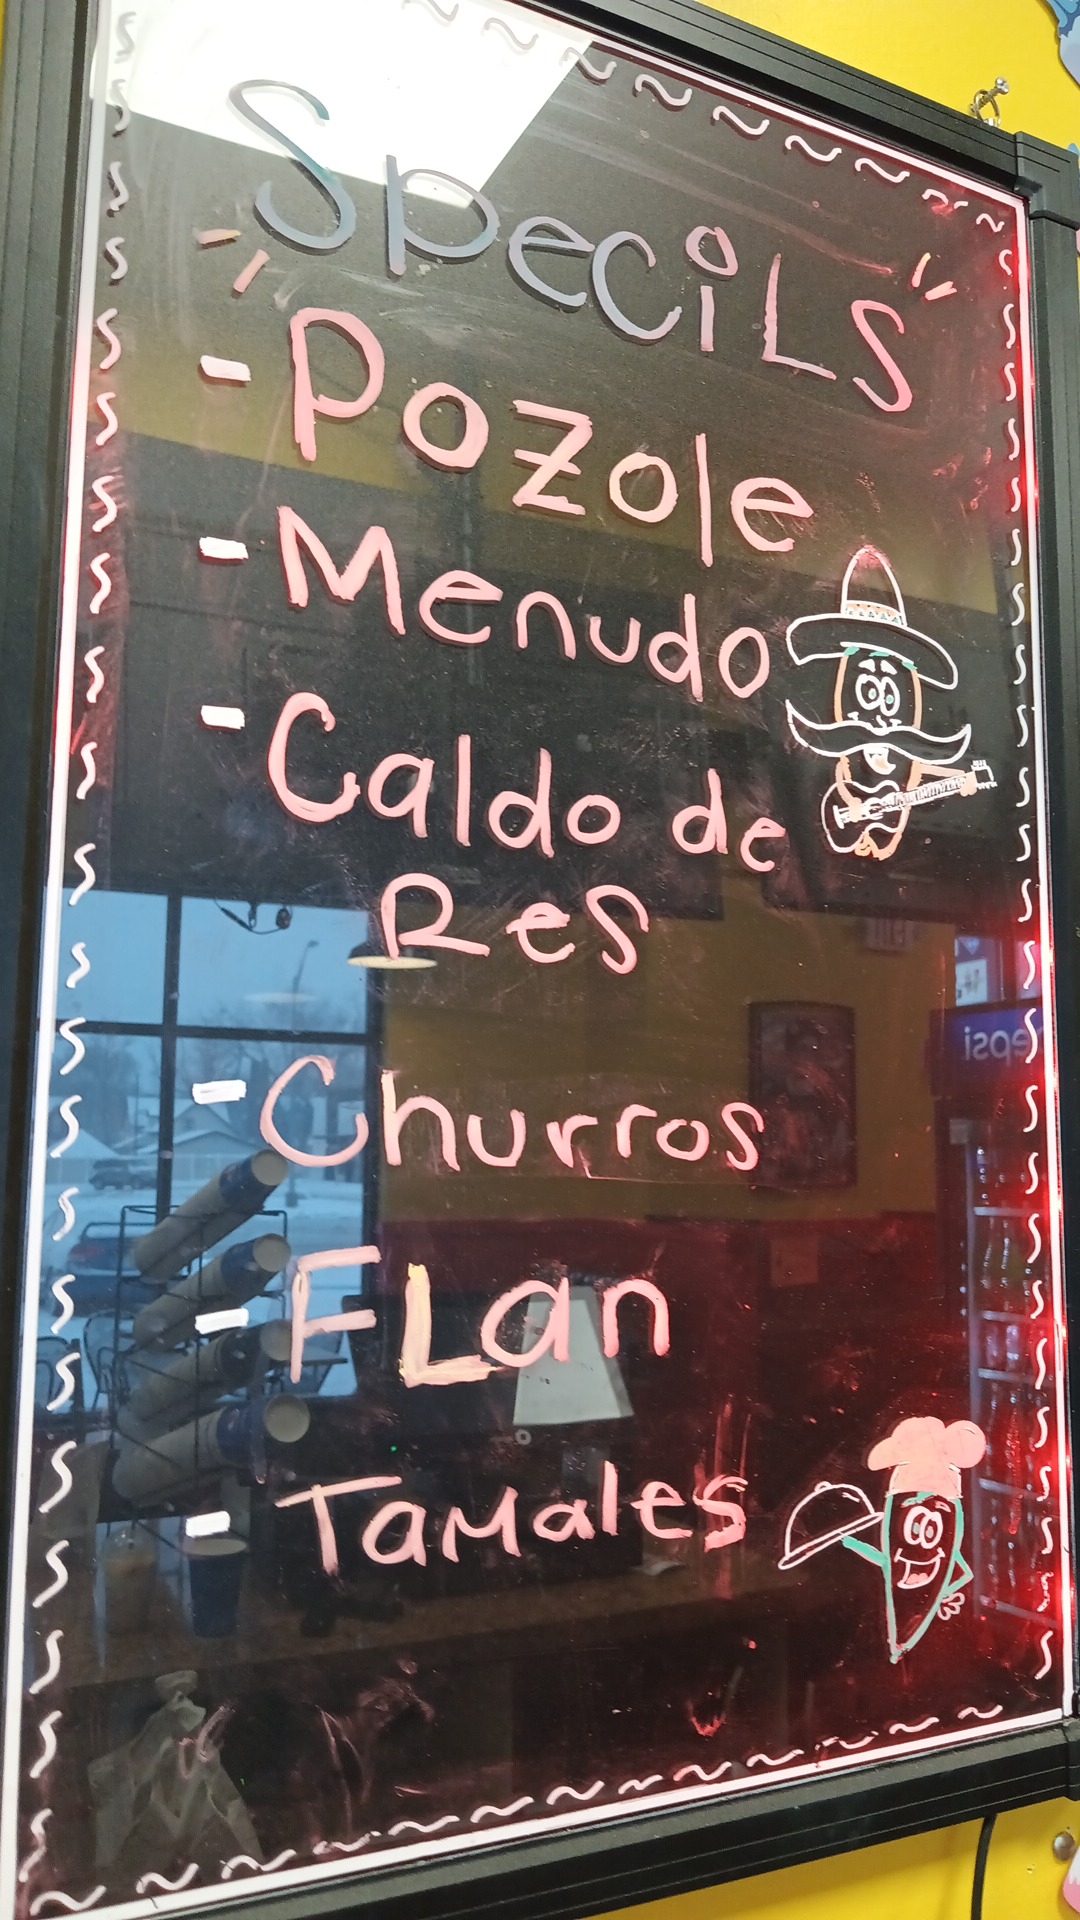 Specils
- Pozole
- Menudo
- Caldo de
Res
- Churros
- FLan
- Tamales
pepsi